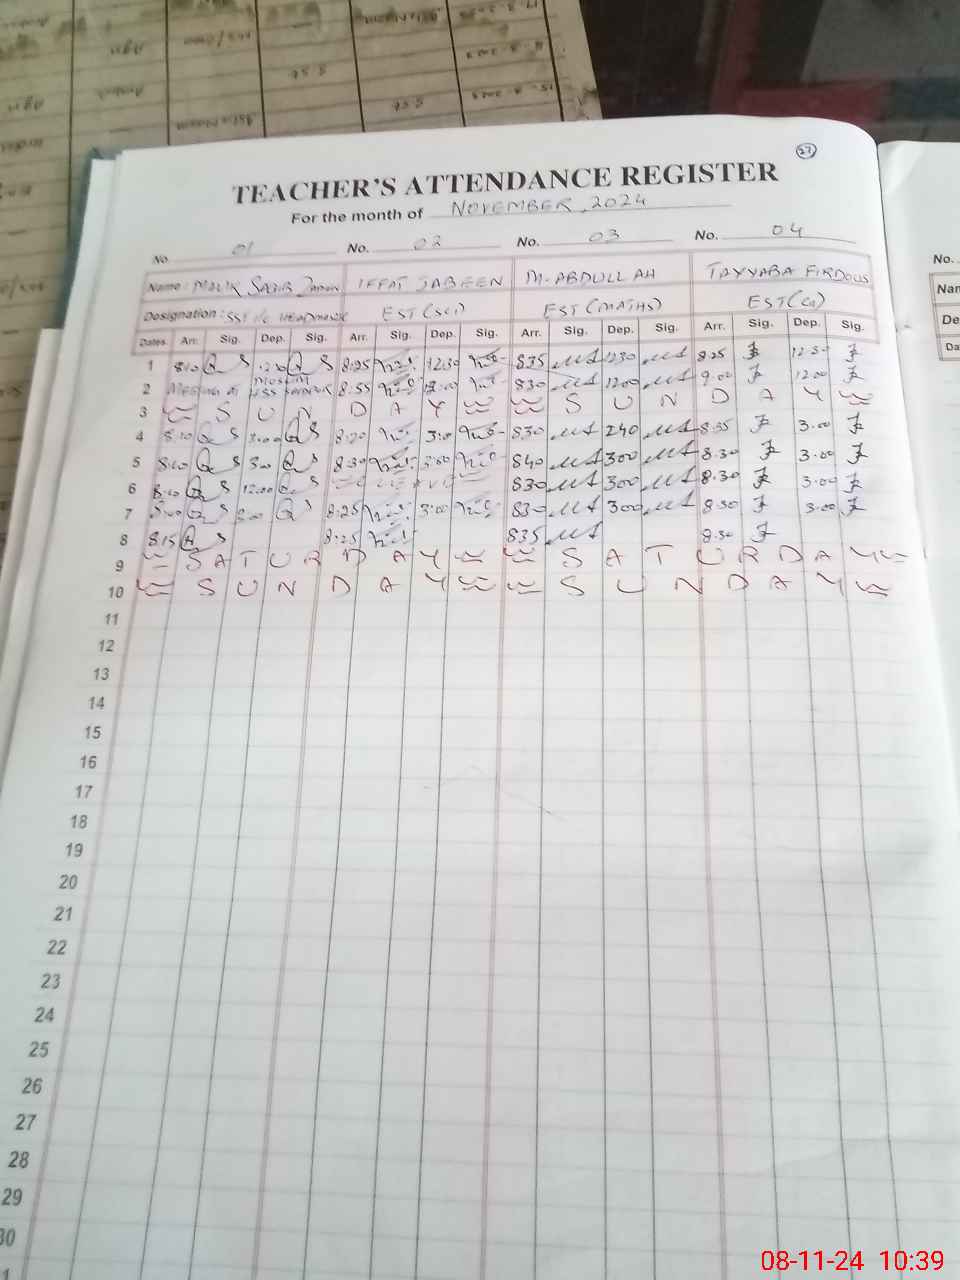 27
TEACHER'S ATTENDANCE REGISTER
For the month of NOVEMBER, 2024
No. 01 No. 02 No. 03 No. 04 No.
Name: MALIK SABIR ZAMAN IFFAT JABEEN M. ABDULLAH TAYYABA FIRDOUS Nam
Designation: SST I/C HEADMASTER EST (SCI) EST (MATHS) EST (CT) De
Dates Arr. Sig. Dep. Sig. Arr. Sig. Dep. Sig. Arr. Sig. Dep. Sig. Arr. Sig. Dep. Sig. Da
1 8.10 12.30 8.25 12.30 835 1230 8.25 12.30
2 MEETING AT 8.55 12.00 830 1200 9.00 12.00
3 S U N D A Y S U N D A Y
4 8.10 3.00 8.20 3.00 830 240 8.35 3.00
5 8.10 3.00 8.30 3.00 840 300 8.30 3.00
6 8.10 12.00 LEAVE 830 300 8.30 3.00
7 3.00 8.25 3.00 830 300 8.30 3.00
8 8.15 8.25 835 8.30
9 S A T U R D A Y S A T U R D A Y
10 S U N D A Y S U N D A Y
11
12
13
14
15
16
17
18
19
20
21
22
23
24
25
26
27
28
29
30
08-11-24 10:39